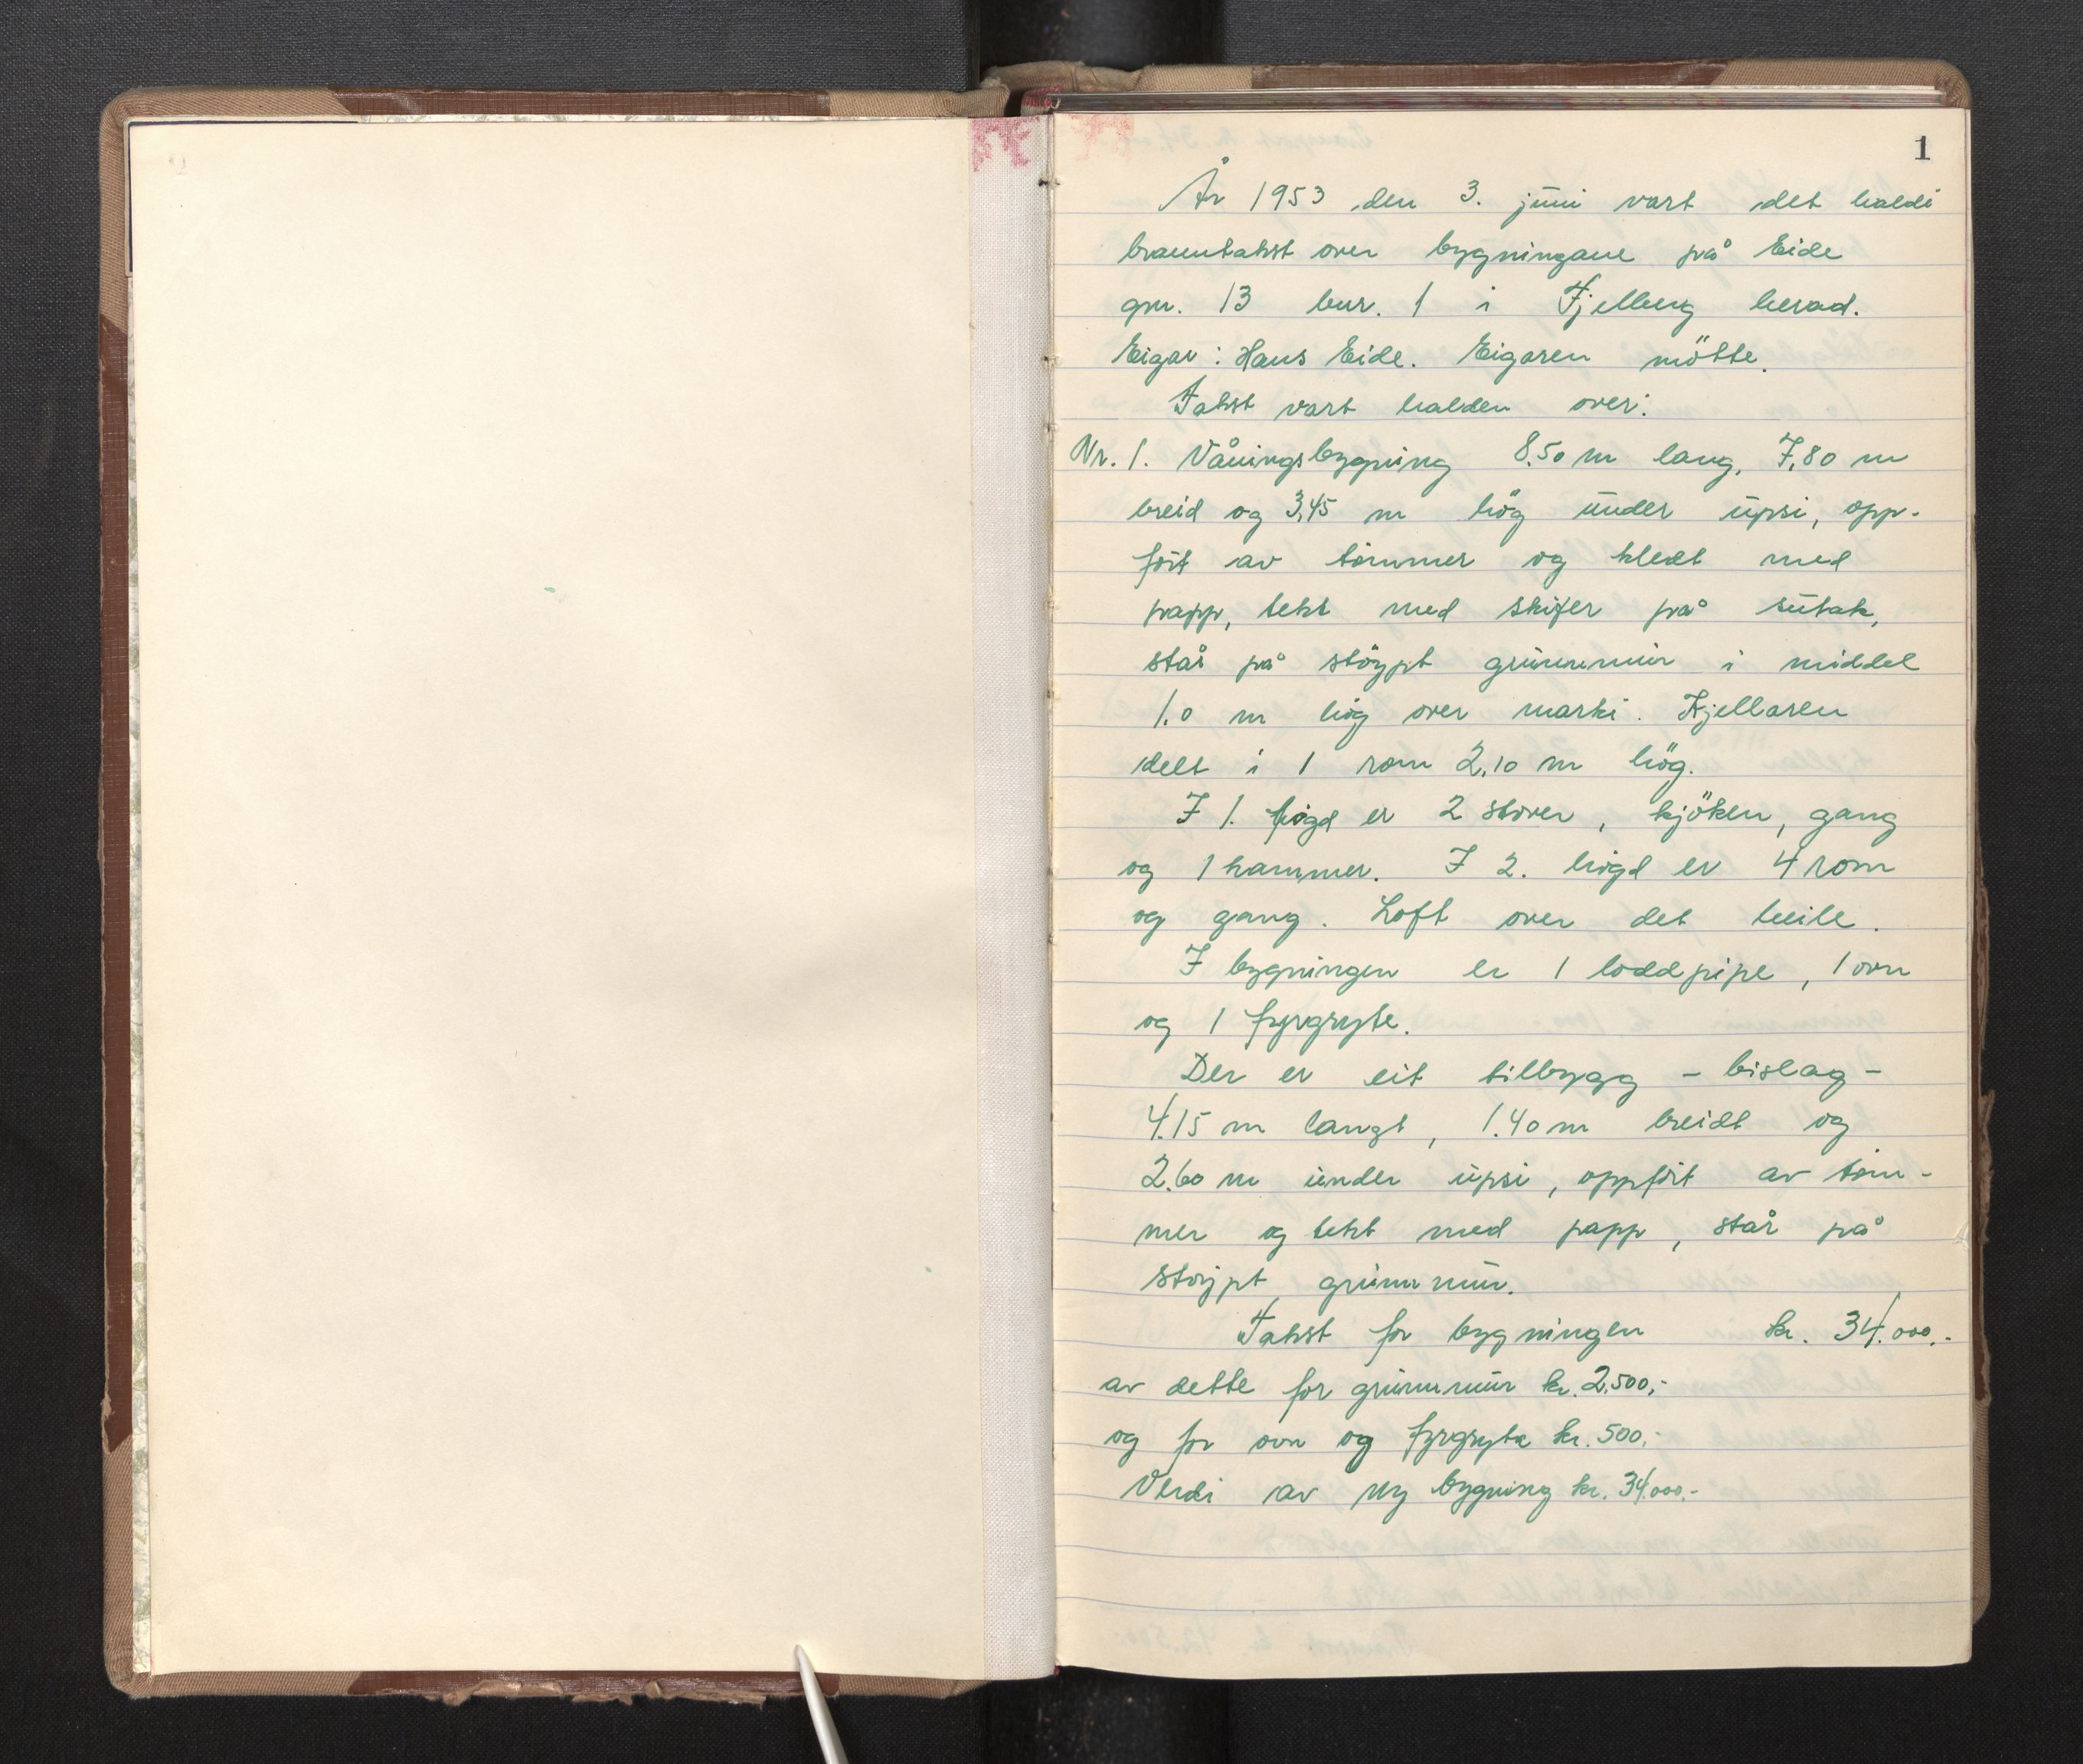 1
År 1953 den 3. juni vart det haldi
branntakst over bygningane på Eide
gnr. 13 bnr. 1 i Fjelberg herad.
Eigar: Hans Eide. Eigaren mötte.
Takst vart halden over:
Nr. 1. Våningsbygning 8.50 m lang, 7,80 m
breid og 3,45 m hög under upsi, opp-
fört av tömmer og kledt med
papp, tekt med skifer på sutak,
står på stöypt grunnmur i middel
1.0 m hög over marki. Kjellaren
delt i 1 rom 2,10 m hög.
I 1. högd er 2 stover, kjöken, gang
og 1 kammer. I 2. högd er 4 rom
og gang. Loft over det heile.
I bygningen er 1 loddpipe, 1 ovn
og 1 fyrgryte.
Der er eit tilbygg - bislag -
4.15 m langt, 1.40 m breidt og
2.60 m under upsi, oppfört av töm-
mer og tekt med papp, står på
stöypt grunnmur.
Takst for bygningen kr. 34.000,-
av dette for grunnmur kr. 2.500,-
og for ovn og fyrgryte kr. 500,-
Verdi av ny bygning kr. 34.000,-